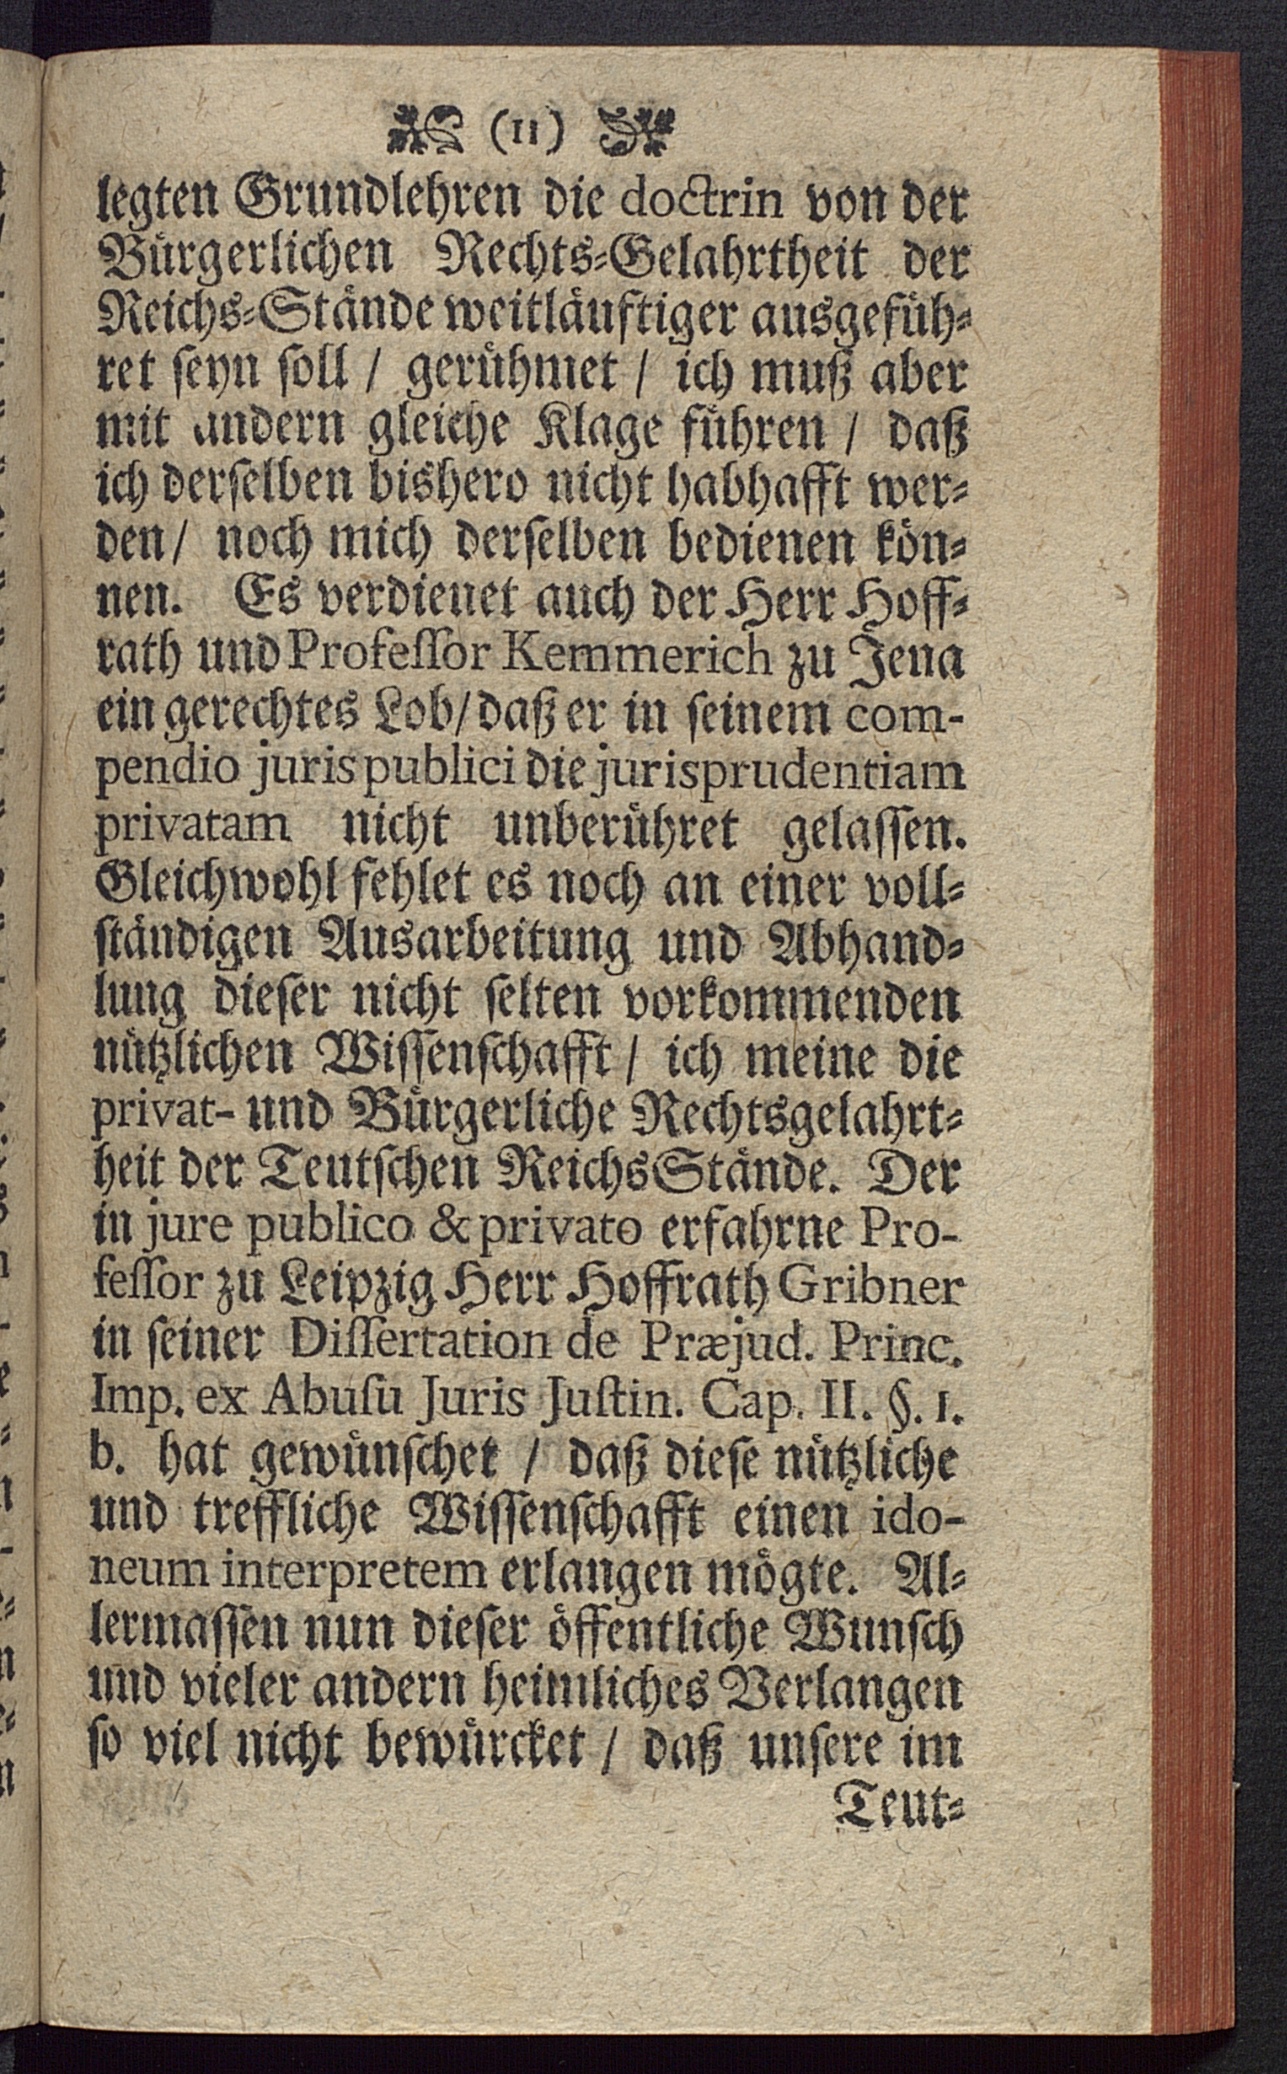 (11)
legten Grundlehren die doctrin von der
Bürgerlichen Rechts-Gelahrtheit der
Reichs-Stände weitläuftiger ausgefüh-
ret seyn soll / gerühmet / ich muß aber
mit andern gleiche Klage führen / daß
ich derselben bishero nicht habhafft wer-
den / noch mich derselben bedienen kön-
nen. Es verdienet auch der Herr Hoff-
rath und Professor Kemmerich zu Jena
ein gerechtes Lob / daß er in seinem com-
pendio juris publici die jurisprudentiam
privatam nicht unberühret gelassen.
Gleichwohl fehlet es noch an einer voll-
ständigen Ausarbeitung und Abhand-
lung dieser nicht selten vorkommenden
nützlichen Wissenschafft / ich meine die
privat- und Bürgerliche Rechtsgelahrt-
heit der Teutschen ReichsStände. Der
in jure publico & privato erfahrne Pro-
fessor zu Leipzig Herr Hoffrath Gribner
in seiner Dissertation de Præjud. Princ.
Imp. ex Abusu Juris Justin. Cap. II. §. 1.
b. hat gewünschet / daß diese nützliche
und treffliche Wissenschafft einen ido-
neum interpretem erlangen mögte. Al-
lermassen nun dieser öffentliche Wunsch
und vieler andern heimliches Verlangen
so viel nicht bewürcket / daß unsere im
Teut-